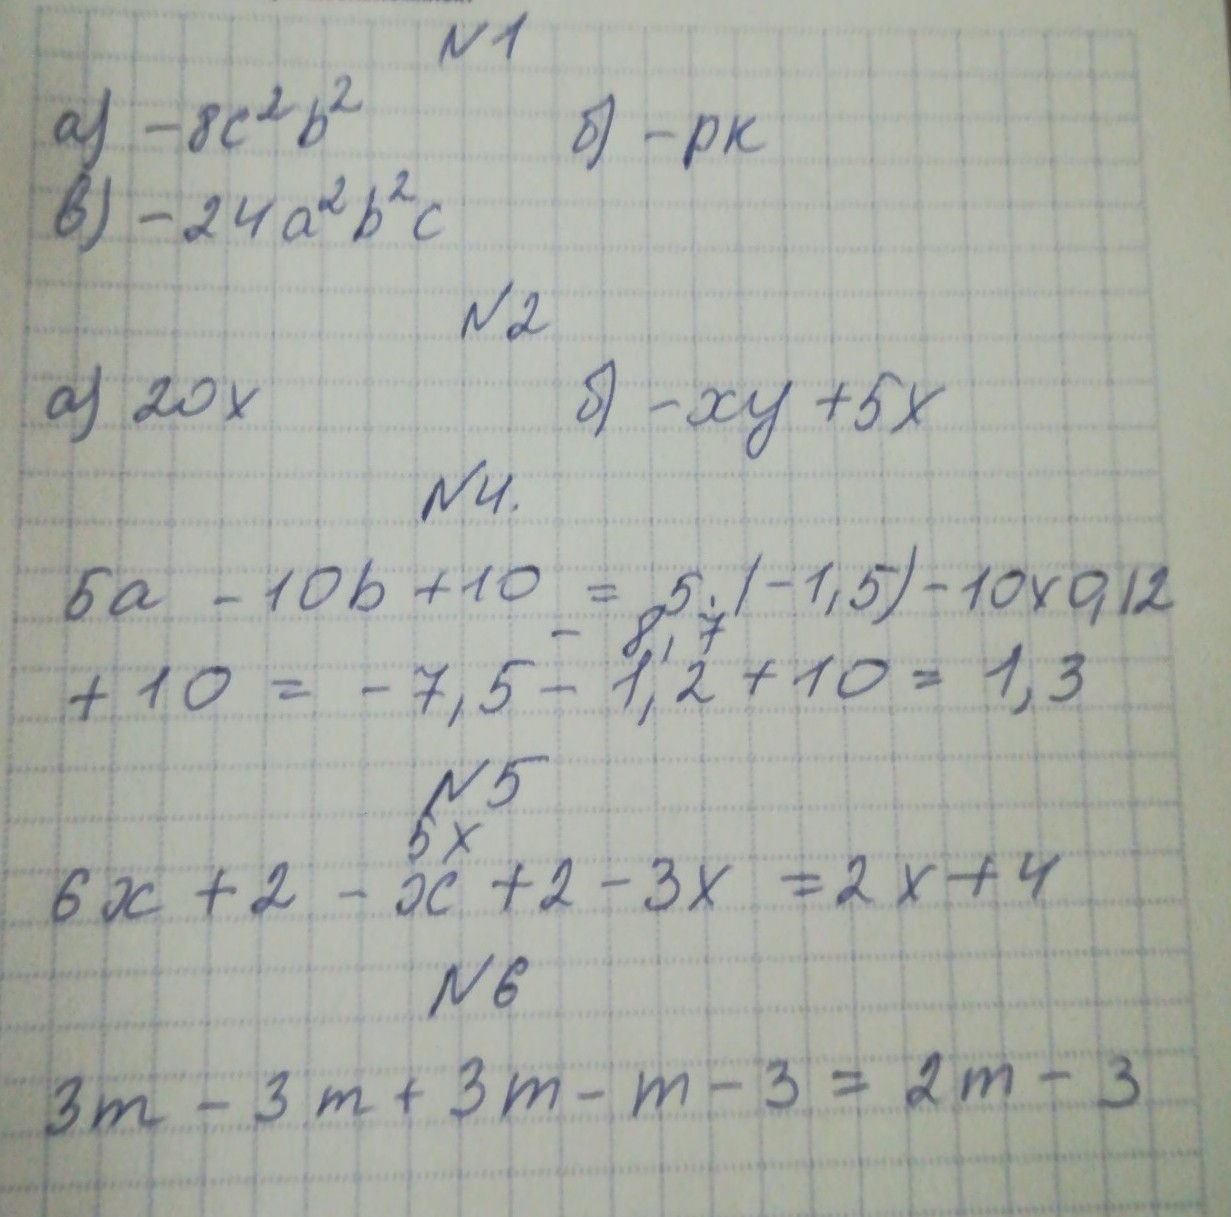 N1
а) -8c²b² б) -pk
в) -24a²b²c
N2
а) 20x б) -xy +5x
N4.
5a - 10b + 10 = 5·(-1,5) - 10x0,12
- 8,7
+ 10 = -7,5 - 1,2 + 10 = 1,3
N5
5x
6x + 2 - x + 2 - 3x = 2x + 4
N6
3m - 3m + 3m - m - 3 = 2m - 3